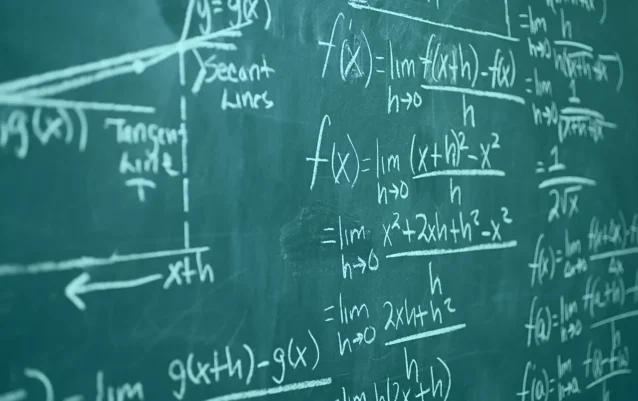 y = g(x)
Secant
Lines
g(x))
Tangent
Line
T
x+h
lim g(x+h)-g(x)
f'(x) = lim h→0 f(x+h)-f(x) / h
f(x) = lim h→0 (x+h)²-x² / h
= lim h→0 x²+2xh+h²-x² / h
= lim h→0 2xh+h² / h
lim h(2x+h)
= lim h→0 h
= lim h→0 1
= 1 / 2√x
f(x) = lim
f(a) = lim h→0 f(a+h)-
f'(a) = lim